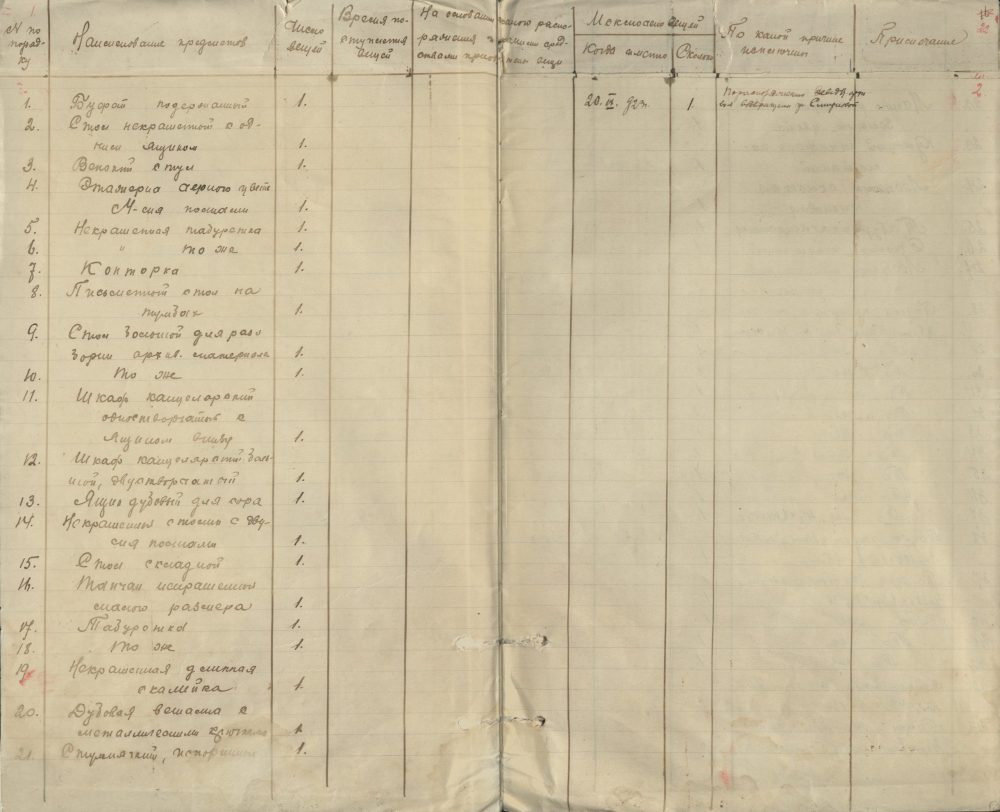 № по поряд-ку
Наименование предметов
Число вещей
Время по-ступления вещей
На основании какого распо-
ряжения
Когда именно
Сколько
По какой причине исключены
Примечание
2.
1. Буфет подержанный 1. 20. IX. 923. 1.
2. Стол некрашеной с од-
ним ящиком 1.
3. Венский стул 1.
4. Этажерка черного цвета
4-мя полками 1.
5. Некрашенная табуретка 1.
6. " то же 1.
7. Конторка 1.
8. Письменный стол на
тумбах 1.
9. Стол большой для раз
борки архив. материала 1.
10. То же 1.
11. Шкаф канцелярский
одностворчатый с
ящиком внизу 1.
12. Шкаф канцелярский боль-
шой, двустворчатый 1.
13. Ящик дубовый для сора 1.
14. Некрашенный столик с дву-
мя полками 1.
15. Стол складной 1.
16. Топчан некрашенный
малого размера 1.
17. Табуретка 1.
18. То же 1.
19. Некрашенная длинная
скамейка 1.
20. Дубовая вешалка с
металлическими 1.
21. Стул мягкий, 1.